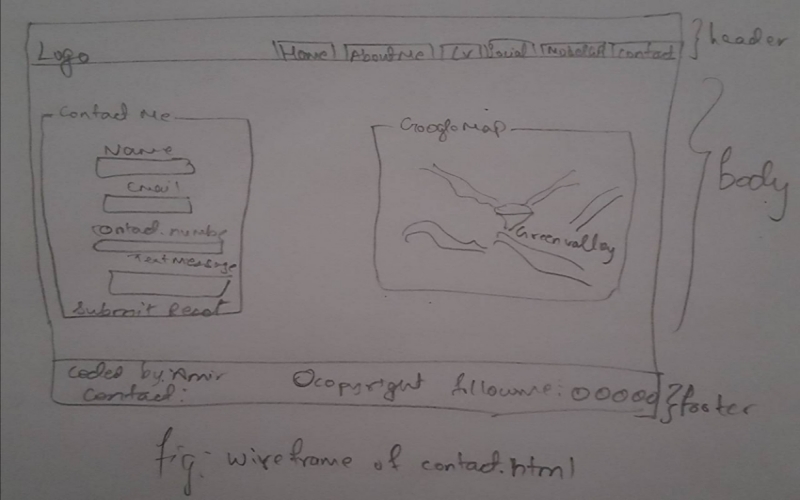 Logo Home AboutMe CV Social Contact } header
Contact Me
Name
Email
contact.number
Text Message
Submit Reset
Google Map
Greenvalley
body
coded by: Amir ©copyright followme: OOOOO } footer
contact:
fig:- wireframe of contact.html